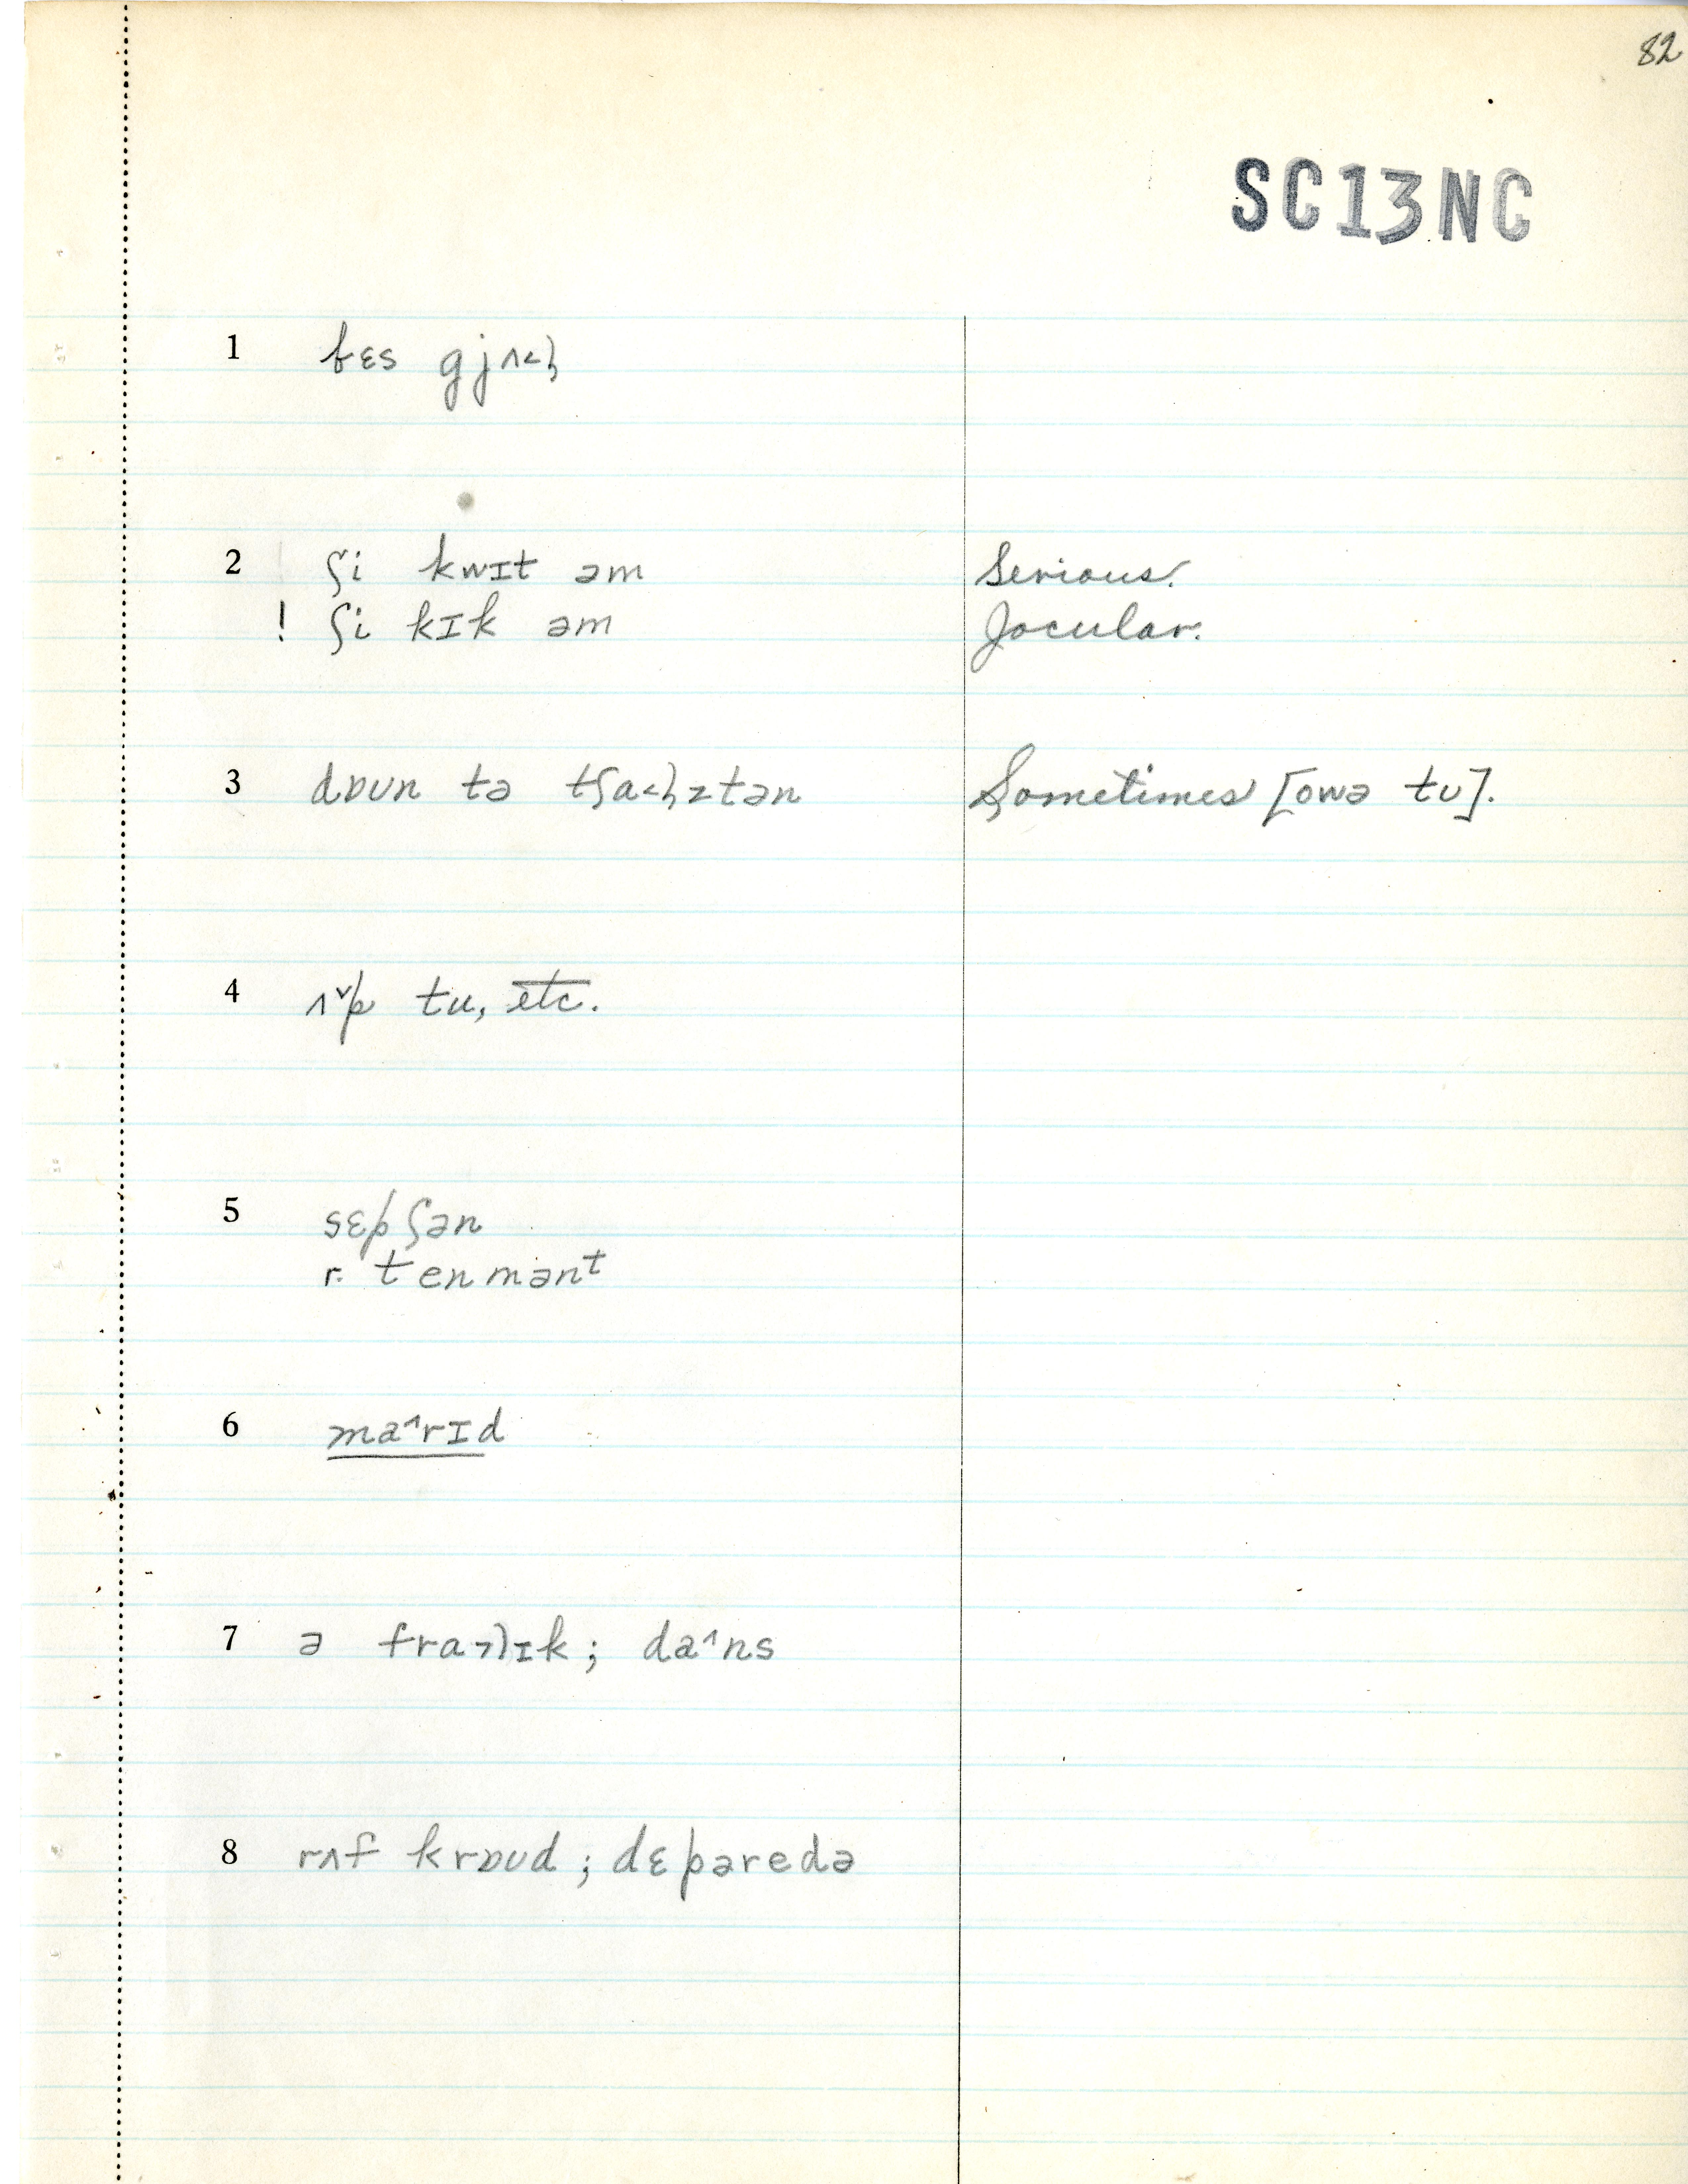 82
SC13NC
1 bɛs gjʌ˂ɫ
2 ʃi kwɪt əm Serious.
! ʃi kɪk əm Jocular.
3 dɒʊn tə tʃa˂ɫztən Sometimes [owə tʊ].
4 ʌ˅p tu, etc.
5 sɛpʃən
r. tenmənᵗ
6 ma˄rɪd
7 ə fra˃lɪk; da˄ns
8 rʌf krɒʊd; dɛpəredə